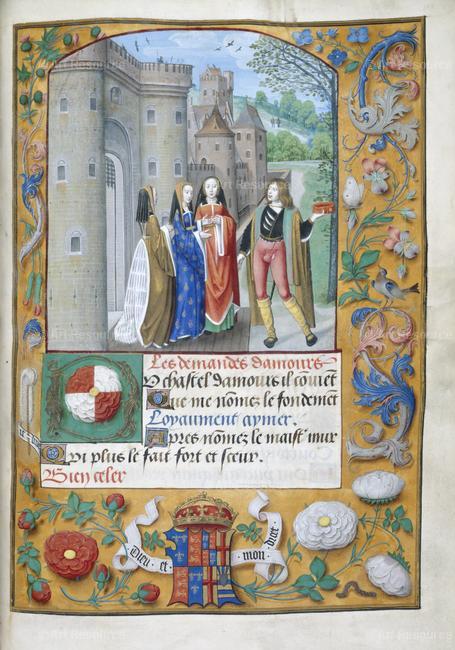 Les demandes damours
chastel damours il couient
Que me nomez le fondemēt
Loyaument aymer.
Apres nomez le maist mur
Qui plus le fait fort et sœur.
Bien celer
Dieu · et · mon · droit